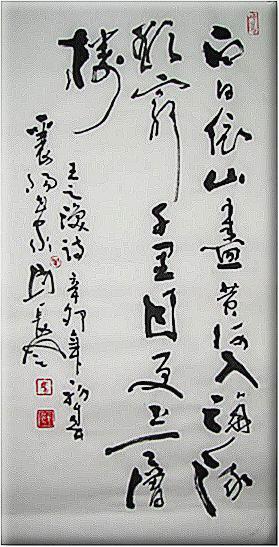 白日依山盡黄河入海流
欲窮千里目更上一層
樓
王之渙詩辛卯年初春